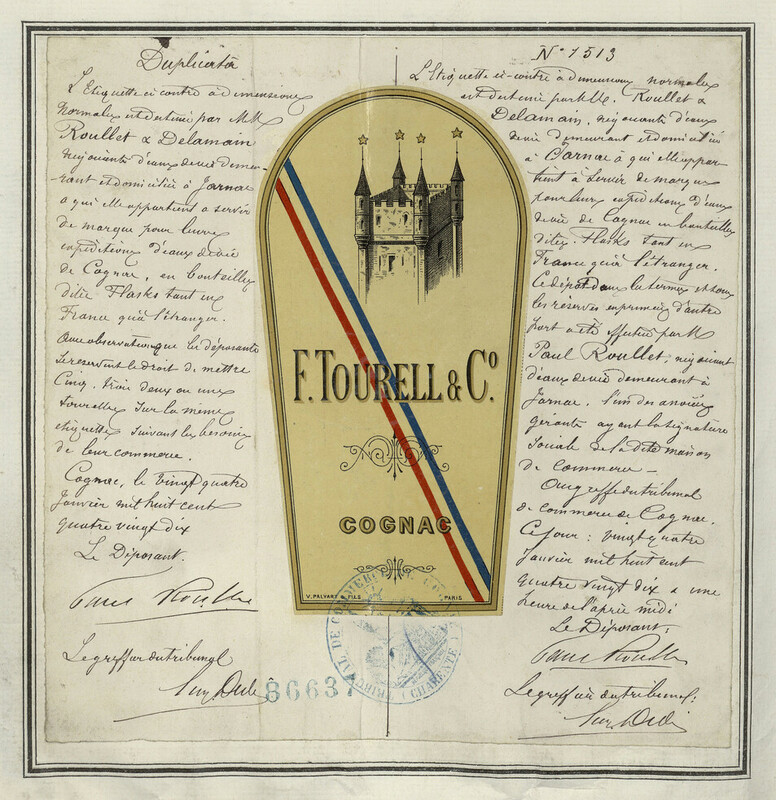 Duplicata
L'Etiquette ci contre à dimensions
normales est destinée par MM
Roullet & Delamain
négociants d'eaux de vie demeu-
rant et domiciliés à Jarnac
à qui elle appartient à servir
de marque pour leurs
expéditions d'eaux de vie
de Cognac, en bouteilles
dites Flasks tant en
France qu'à l'étranger.
Avec observation que les déposants
se réservent le droit de mettre
Cinq, trois deux ou une
Tourelles sur la même
étiquette suivant les besoins
de leur commerce.
Cognac, le vingt quatre
Janvier mil huit cent
quatre vingt dix
Le Déposant.
Paul Roullet
Le greffier du tribunal
86637
F. TOURELL & Cº
COGNAC
V. PALYART & FILS PARIS
TRIBUNAL DE COMMERCE DE COGNAC
(CHARENTE)
Nº 1513
L'Etiquette ci-contre à dimensions normales
est destinée par MM. Roullet &
Delamain, négociants d'eaux
de vie demeurant et domiciliés
à Jarnac à qui elle appar-
tient à servir de marque
pour leurs expéditions d'eaux
de vie de Cognac en bouteilles
dites Flasks tant en
France qu'à l'étranger.
Ce dépôt dans les termes et sous
les réserves exprimées d'autre
part a été effectué par M
Paul Roullet, négociant
d'eaux de vie demeurant à
Jarnac, l'un des associés
gérants ayant la signature
sociale de la dite maison
de commerce —
Au greffe du tribunal
de commerce de Cognac.
Ce jour : vingt quatre
Janvier mil huit cent
quatre vingt dix à une
heure de l'après midi
Le Déposant,
Paul Roullet
Le greffier du tribunal: